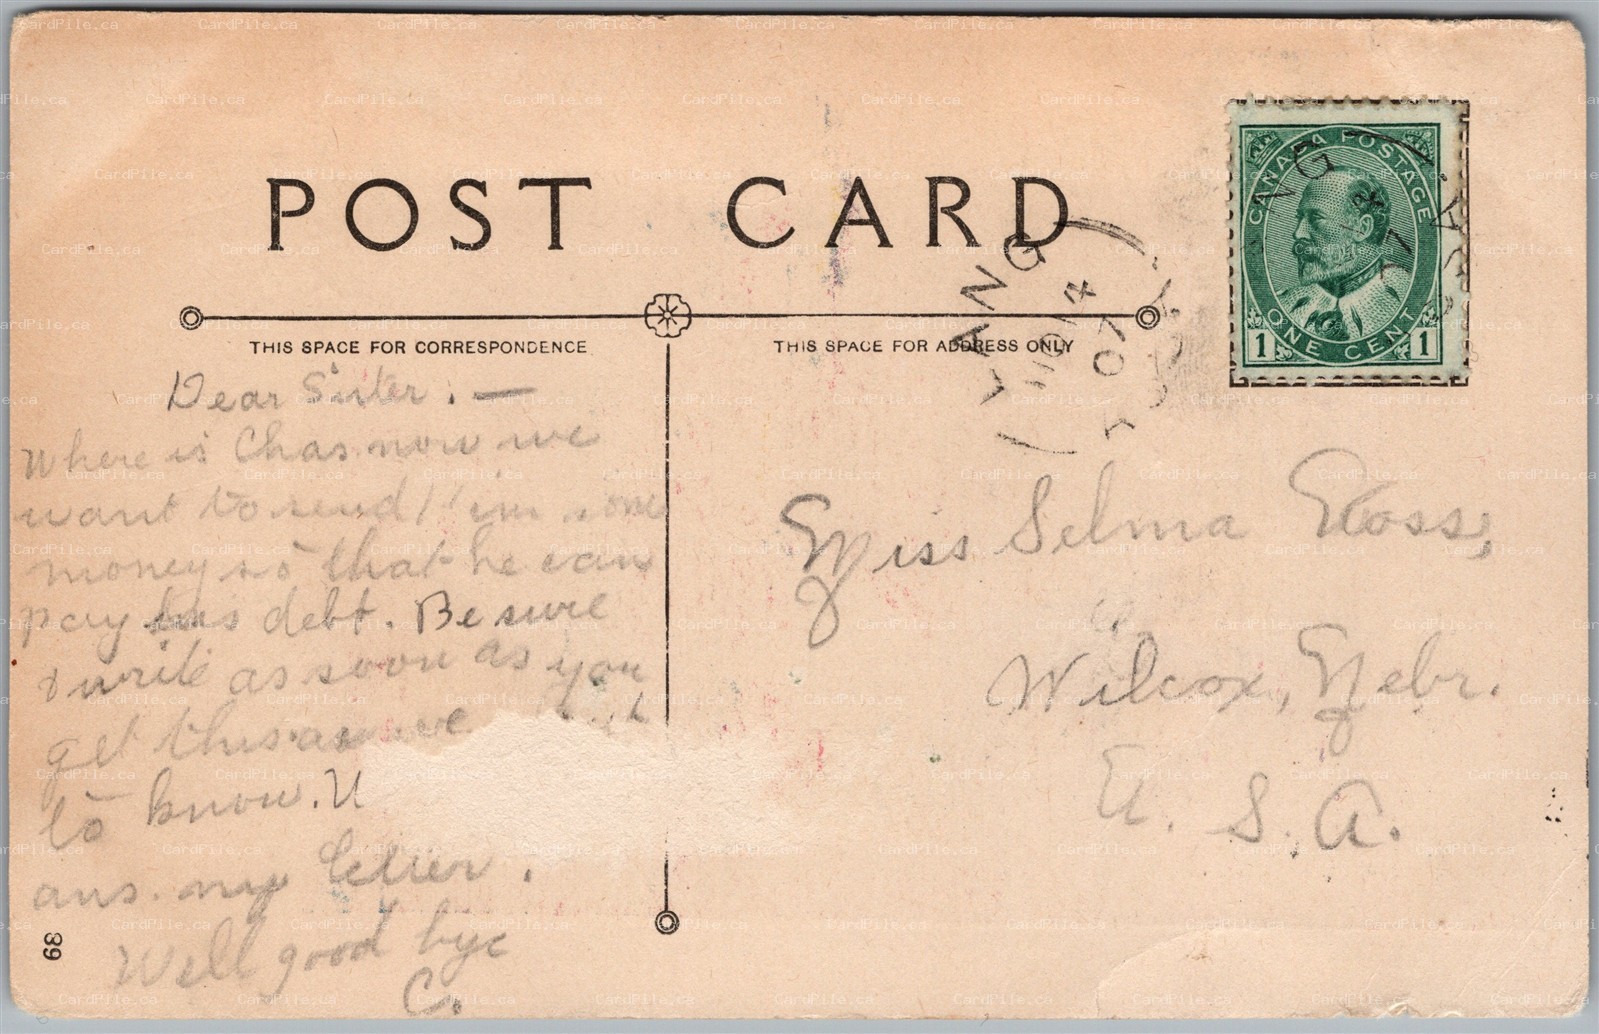 POST CARD
THIS SPACE FOR CORRESPONDENCE
THIS SPACE FOR ADDRESS ONLY
CANADA POSTAGE
ONE CENT
1 1
LANG
07
Dear Sister. —
Where is Chas now we
want to send him some
money so that he can
pay his debt. Be sure
& write as soon as you
get this as we
to know.
ans. my letter.
Well good bye
C.
Miss Selma Ross,
Wilcox, Nebr.
U. S. A.
39
CardPile.ca